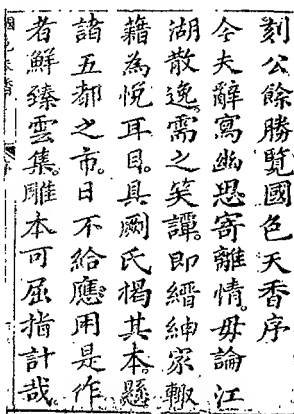 刻公餘勝覽國色天香序
今夫辭寫幽思。寄離情。毋論江
湖散逸。需之笑譚。即縉紳家輙
藉為悅耳目。具剞氏揭其本。懸
諸五都之市。日不給應。用是作
者鮮臻雲集。雕本可屈指計哉。